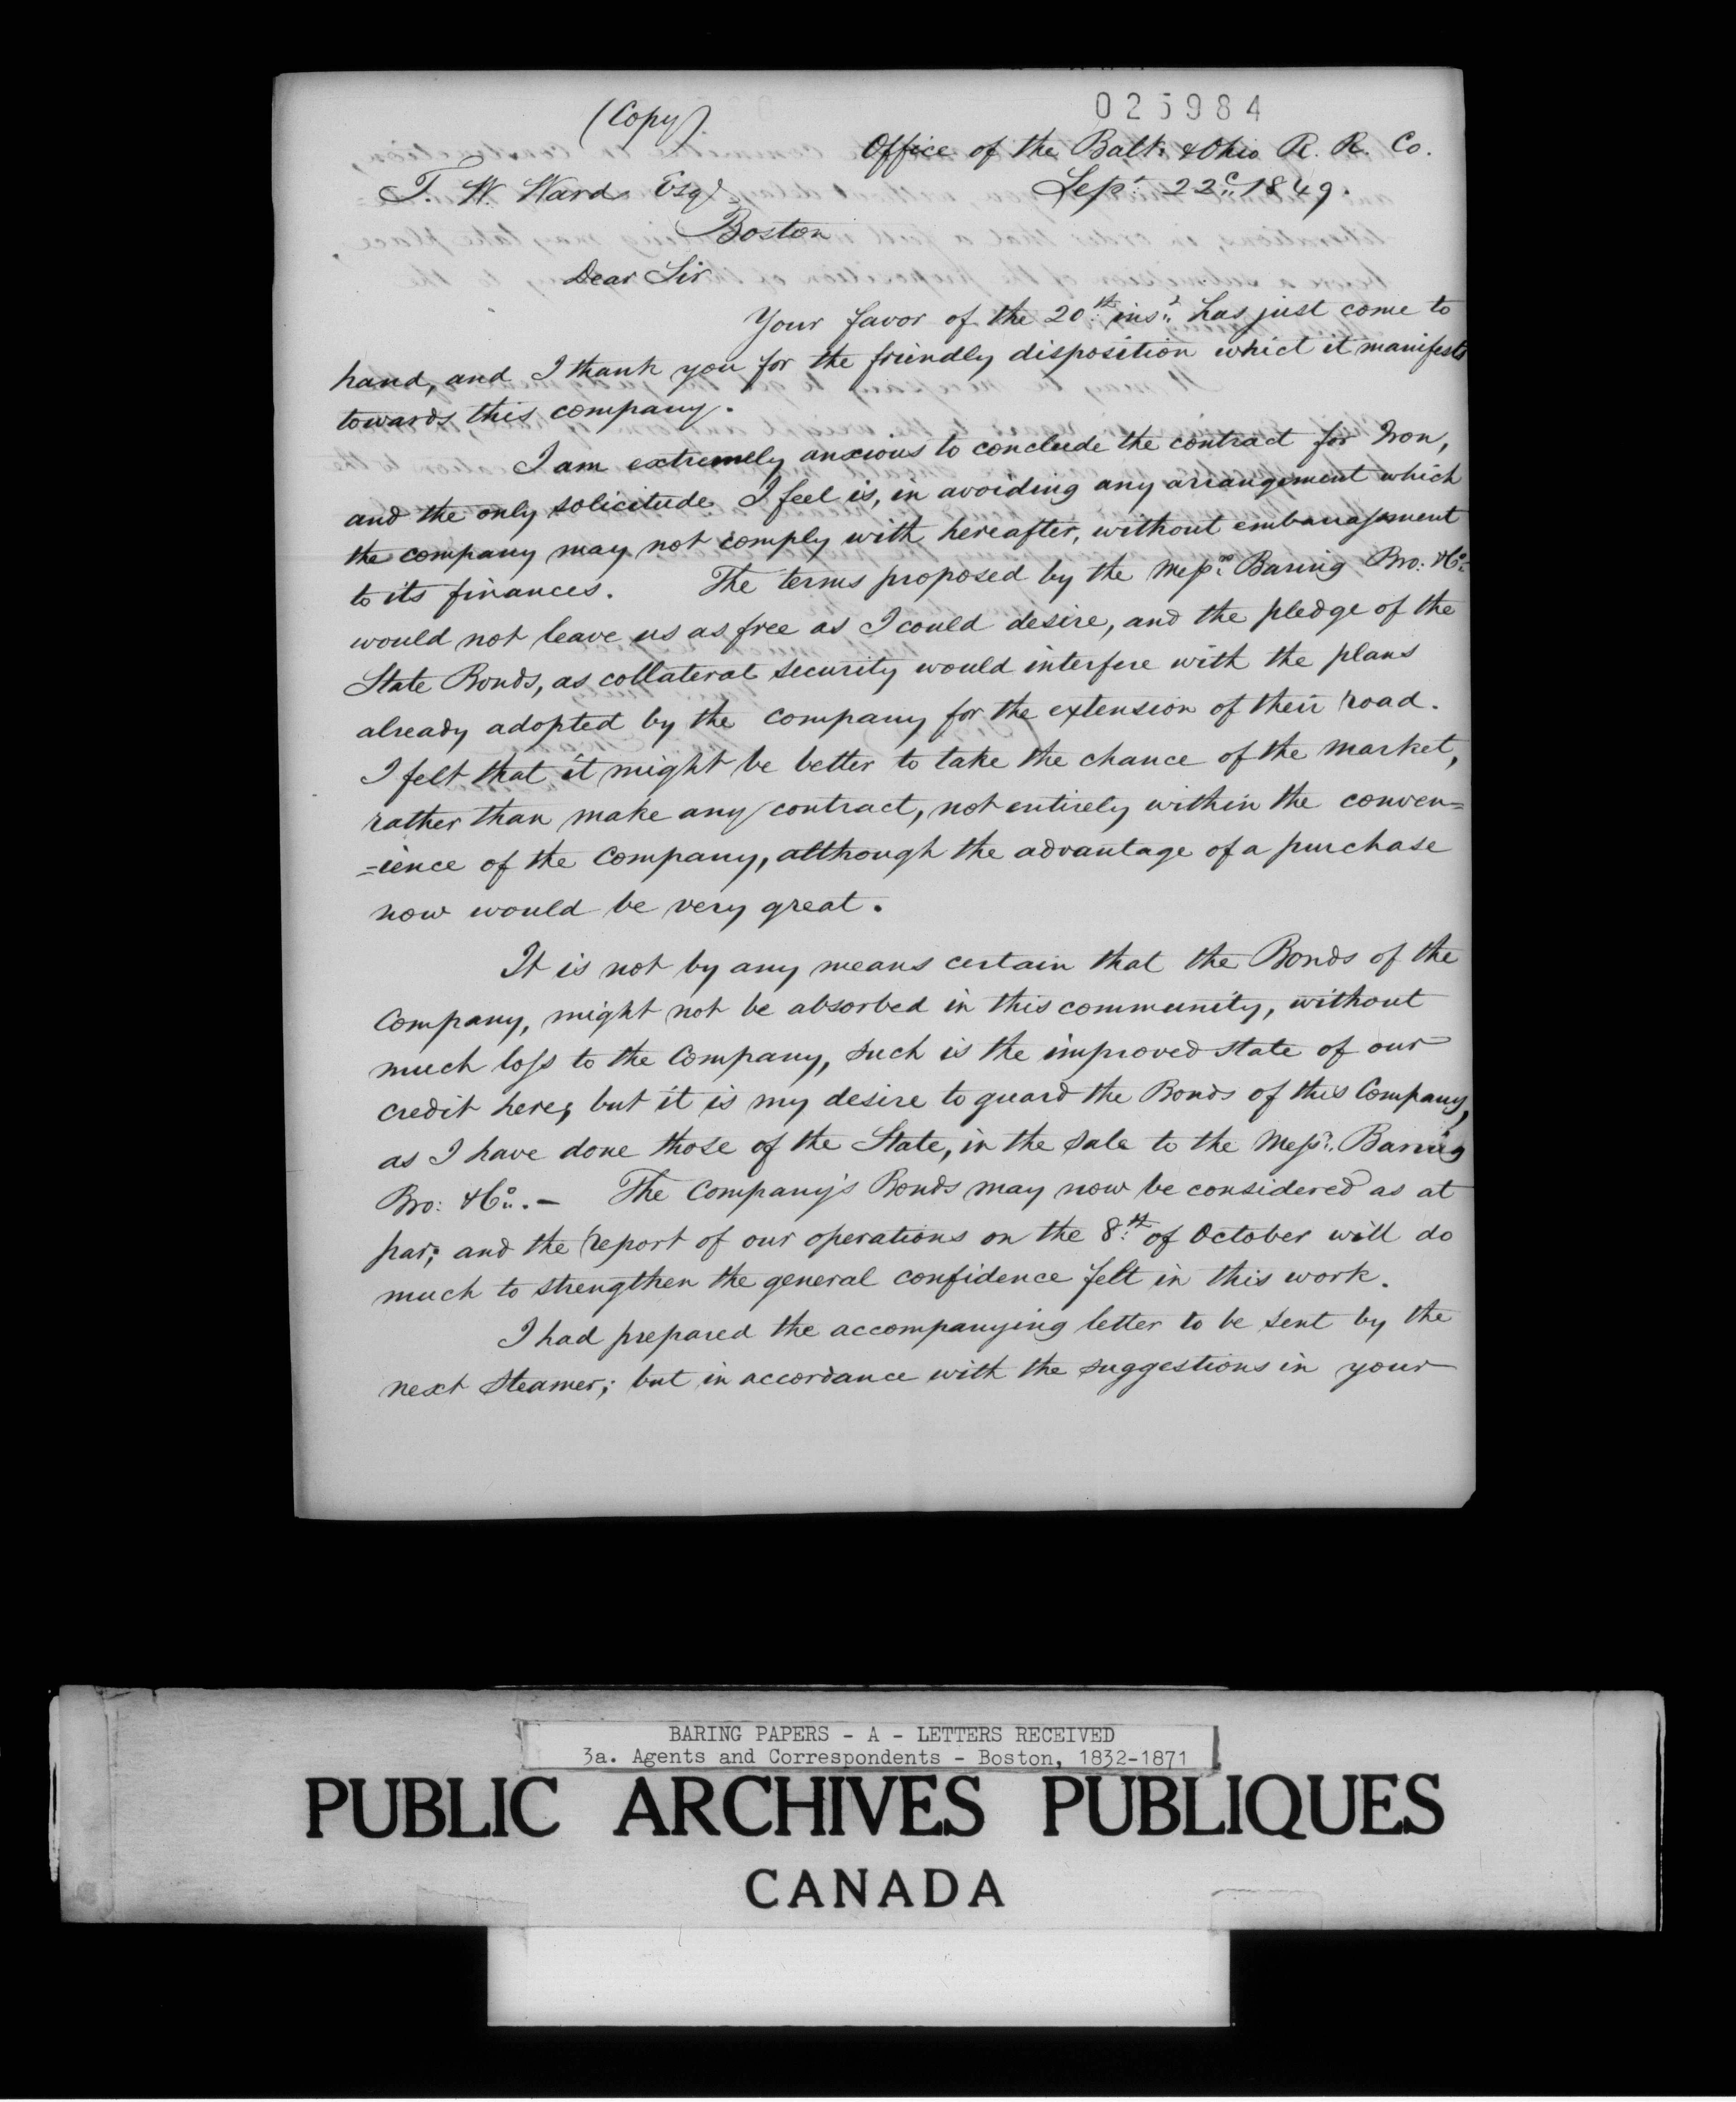 (Copy)
025984
Office of the Balt: & Ohio R. R. Co.
Sept: 22d 1849.
T. W. Ward Esqr
Boston
Dear Sir
Your favor of the 20th inst: has just come to
hand, and I thank you for the friendly disposition which it manifests
towards this company.
I am extremely anxious to conclude the contract for Iron,
and the only solicitude I feel is, in avoiding any arrangement which
the company may not comply with hereafter, without embarrassment
to its finances. The terms proposed by the Messrs Baring Bro: & Co:
would not leave us as free as I could desire, and the pledge of the
State Bonds, as collateral security would interfere with the plans
already adopted by the company for the extension of their road.
I felt that it might be better to take the chance of the market,
rather than make any contract, not entirely within the conven=
=ience of the Company, although the advantage of a purchase
now would be very great.
It is not by any means certain that the Bonds of the
Company, might not be absorbed in this community, without
much loss to the Company, such is the improved state of our
credit here; but it is my desire to guard the Bonds of this Company,
as I have done those of the State, in the sale to the Messrs. Baring
Bro: & Co:. — The Company's Bonds may now be considered as at
par; and the report of our operations on the 8th of October will do
much to strengthen the general confidence felt in this work.
I had prepared the accompanying letter to be sent by the
next steamer; but in accordance with the suggestions in your
BARING PAPERS - A - LETTERS RECEIVED
3a. Agents and Correspondents - Boston, 1832-1871
PUBLIC ARCHIVES PUBLIQUES
CANADA